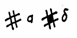 # a # δ